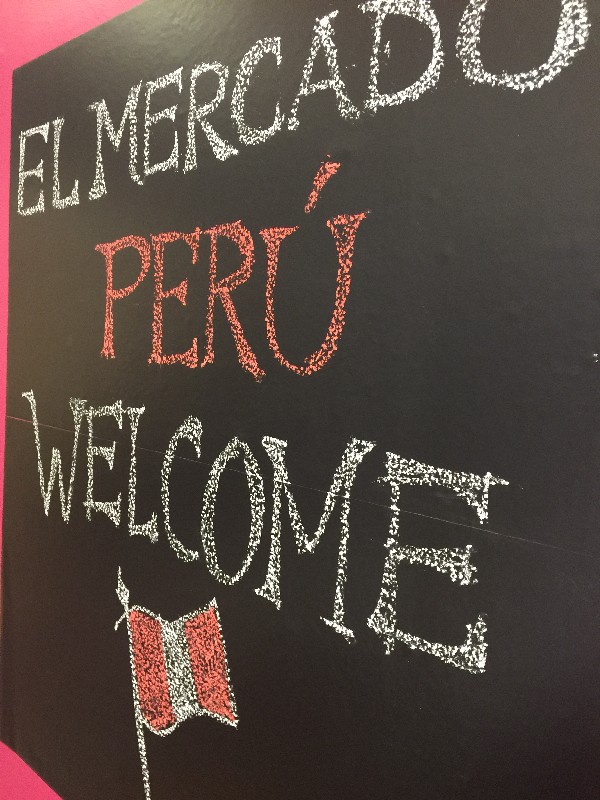 EL MERCADO
PERÚ
WELCOME